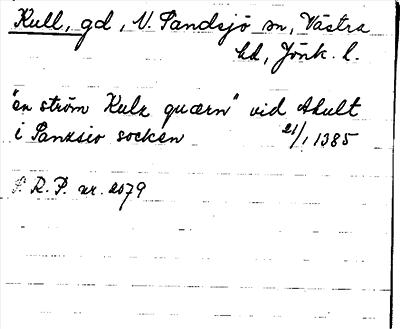 Kull, gd, N. Sandsjö sn, Västra
hd, Jönk. l.
"en ström Kulz quærn" vid Ahult
i Sanzsio socken 21/1 1385
S. R. P. nr. 2079